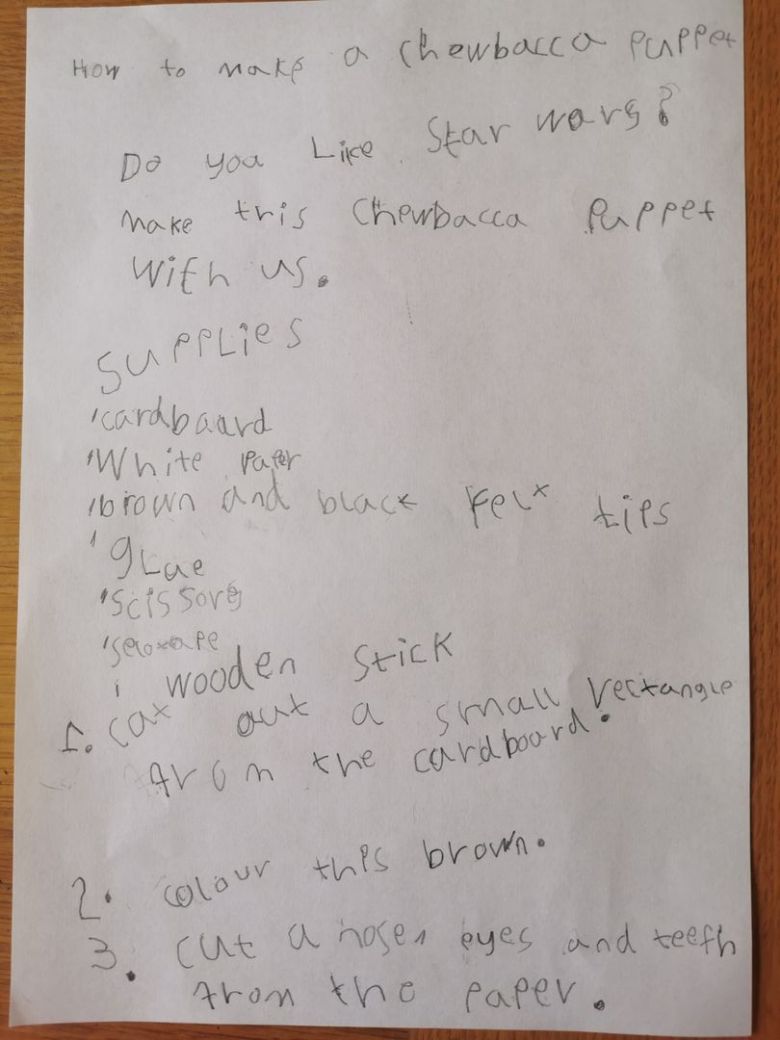 How to make a Chewbacca puppet
Do you Like Star wars?
Make this Chewbacca Puppet
With us.
Supplies
'cardbaard
'White Paper
'brown and black Felt tips
'glue
'Scissors
'seloxape
' wooden Stick
1. cut out a small rectangle
from the cardboard.
2. colour this brown.
3. cut a nose, eyes and teeth
from the paper.